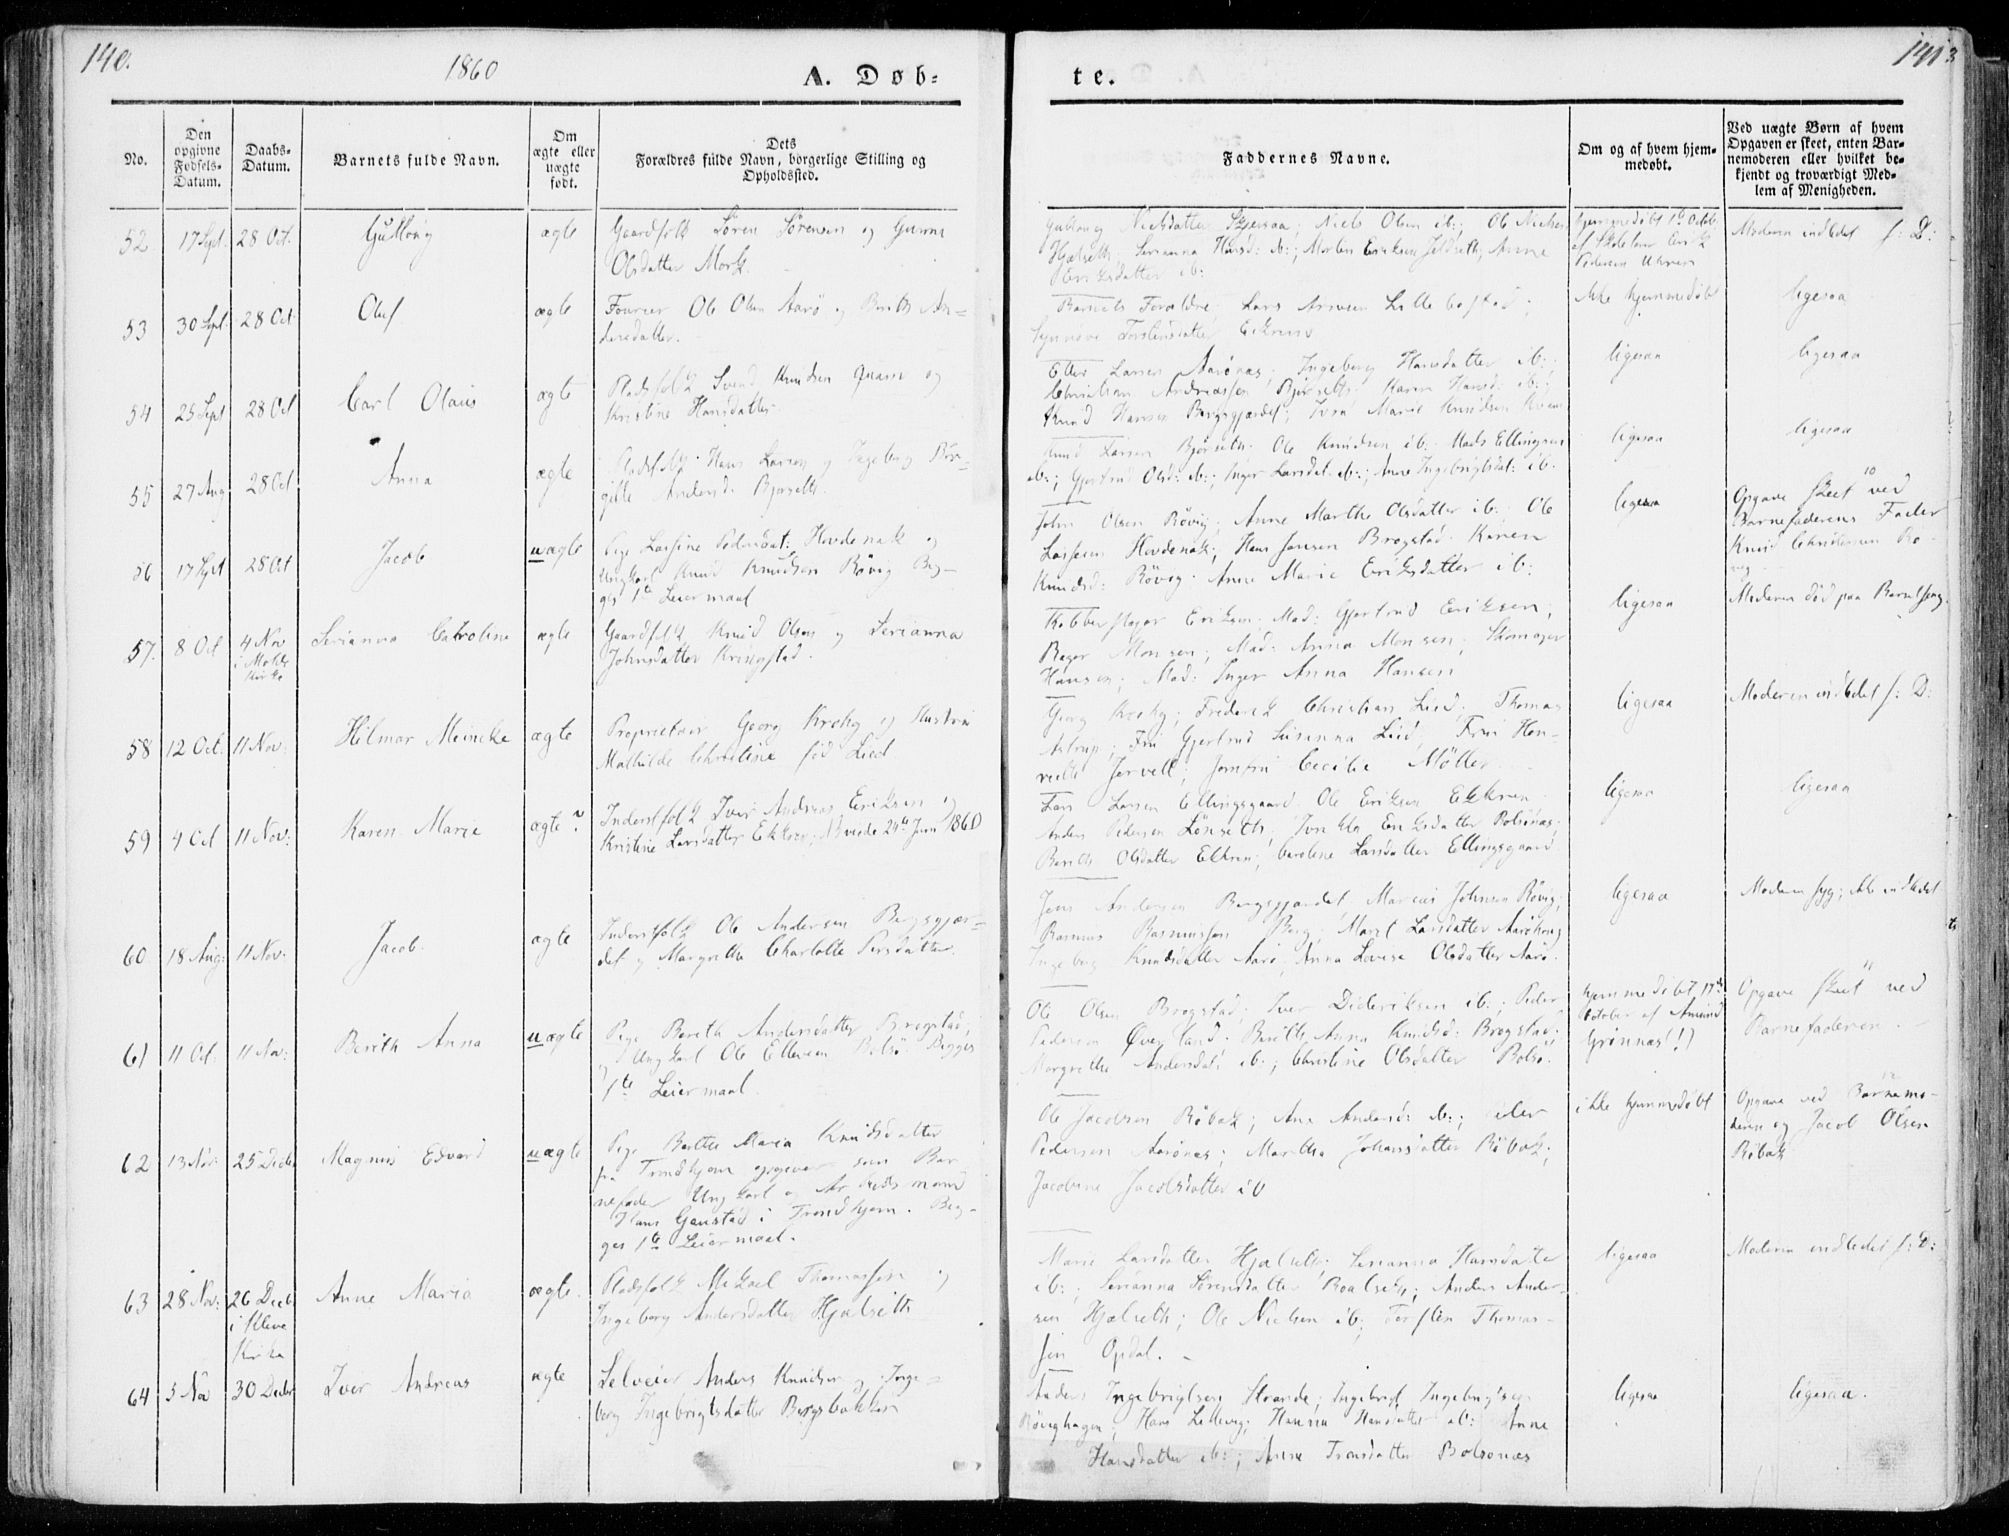 140.
1860
A. Døb-
te.
141
No.
Den opgivne Fødsels-Datum.
Daabs-Datum.
Barnets fulde Navn.
Om ægte eller uægte født.
Dets Forældres fulde Navn, borgerlige Stilling og Opholdssted.
Faddernes Navne.
Om og af hvem hjem-medøbt.
Ved uægte Børn af hvem Opgaven er skeet, enten Bar-nemoderen eller hvilket be-kjendt og troværdigt Med-lem af Menigheden.
52 17 Sept. 28 Oct. Gullong ægte
Gaardfolk Søren Sørensen og Gunne
Olsdatter Mork.
Nielsdatter Niels Olsen ib:; Ole Nielsen
Hjælseth; Serianna Hansd: ib:; Morten Eriksen Anne
Eriksdatter ib:
hjemmedøbt Octbr
af Skolelærer Erik
Pedersen
Moderen indledet f: D:
53 30 Sept. 28 Oct Oluf ægte
Fourier Ole Olsen Aarø og Berith
Barnets Forældre; Lars Arnesen
Synnøve Torstensdatter
ikke hjemmedøbt
ligesaa
54 25 Sept 28 Oct Carl Olaus ægte
Pladsfolk Svend Knudsen og
Kristine Hansdatter
Larsen Aarønæs; Ingeborg Hansdatter ib:;
Christian Andreassen Bjørseth; Karen Hansd: ib:;
Knud Hansen Bergsgjærdet; Marie Knudsen
ligesaa
ligesaa
55 27 Aug 28 Oct Anna ægte
Pladsfolk Hans Larsen og Ingeborg Bir-
gitte Andersd: Bjørseth
Knud Larsen Bjørseth; Ole Knudsen ib: Mads Ellingsen
ib:; Gjertrud Olsd: ib:; Inger Larsdat: ib:; Anne Ingebrigtsdat: ib:
ligesaa
ligesaa
56 17 Sept 28 Oct Jacob uægte
Pige Lassine Pedersdat: Hovdenak og
Ungkarl Knud Knudsen Røvig Beg-
ges 1te Leiermaal
John Olsen Røvig; Anne Marthe Olsdatter ib:; Ole
Lassesen Hovdenak; Hans Jensen Brogstad. Karen
Knudsd: Røvig. Anne Marie Eriksdatter ib:
ligesaa
10
Opgave skeet ved
Barnefaderens Fader
Knud Christensen Rø-
vig
57. 8 Oct 4 Nov i Molde Kirke Serianna Catroline ægte
Gaardfolk Knud Olsen og Serianna
Johnsdatter Kringstad.
Kobberslager Eriksen; Mad: Gjertrud Eriksen;
Bager Monsen; Mad: Anna Monsen; Skomager
Hansen; Mad: Inger Anna Hansen
ligesaa
Moderen død paa Barselseng.
58 12 Oct. 11 Nov: Hilmar Meincke ægte
Proprietær Georg Krohg og Hustru
Mathilde Christine fød Lied
Georg Krohg; Frederik Christian Lied; Thomas
Astrup; Fru Gjertrud Susanna Lied; Frue Hen-
riette Jervell; Jomfru Cecilie Møller.
ligesaa
Moderen indledet f: D:
59 4 Oct 11 Nov: Karen Marie ægte?
Inderstfolk Iver Andreas Eriksen og
Kristine Larsdatter Ekkren; viede 24de Juni 1860
Lars Larsen Ellingsgaard. Ole Eriksen Ekkren.
Anders Pedersen Lønseth; Eriksdatter Bolsønæs;
Berith Olsdatter Ekkren; Caroline Larsdatter Ellingsgaard.
ligesaa
ligesaa
60 18 Aug: 11 Nov: Jacob. ægte
Inderstfolk Ole Andersen Bergsgjær-
det og Margrethe Charlotte Persdatter.
Jens Andersen Bergsgjærdet Marcus Johnsen Røvig;
Rasmus Rasmussen Berg; Marit Larsdatter
Ingeborg Knudsdatter Aarø; Anna Lovise Olsdatter Aarø.
ligesaa
Moderen syg; ikke indledet
61 11 Oct: 11 Nov: Berith Anna uægte
Pige Berith Andersdatter Brogstad,
og Ungkarl Ole Ellevsen Bolsø. Begges
1te Leiermaal.
Ole Olsen Brogstad; Iver Dideriksen ib:; Peder
Pedersen Øverland. Berith Anna Knudsd: Brogstad;
Margrethe Andersdat: ib:; Christine Olsdatter Bolsø.
hjemmedøbt 17de
October af Amund
Grønnæs(!)
11
Opgave skeet ved
Barnefaderen.
62 13 Nov: 25 Decbr Magnus Edvard uægte
Pige Berthe Maria Knudsdatter
fra Trondhjem opgiver som Bar-
nefader Ungkarl og Arbeidsmand
Hans Gaustad i Trondhjem. Beg-
ges 1te Leiermaal.
Ole Jacobsen Røbæk; Ane Andersd: ib:; Peder
Pedersen Aarønæs; Martha Johansdatter Røbæk;
Jacobine Jacobsdatter ib
ikke hjemmedøbt
12
Opgave ved Barnemo-
deren og Jacob Olsen
Røbæk
63 28 Nov: 26 Decb i Kleve Kirke Anne Maria ægte.
Pladsfolk Mikael Thomassen og
Ingeborg Andersdatter Hjælseth
Marie Larsdatter Hjælseth; Serianna Hansdatte
ib:; Serianna Sørensdatter Anders Ander-
sen Hjælseth; Ole Nielsen ib; Torsten Thomas-
sen Opdal. -
ligesaa
Moderen indledet f: D:
64 5 Nov 30 Decbr Iver Andreas ægte
Selveier Anders Knudsen og Inge-
borg Ingebrigtsdatter Bergsbakken
Anders Ingebrigtsen Strande; Ingebrigt Ingebrigtsen
Røvighagen; Hans Hanna Hansdatter ib: Anne
Hansdatter ib:; Anne Bolsønæs
ligesaa
ligesaa.